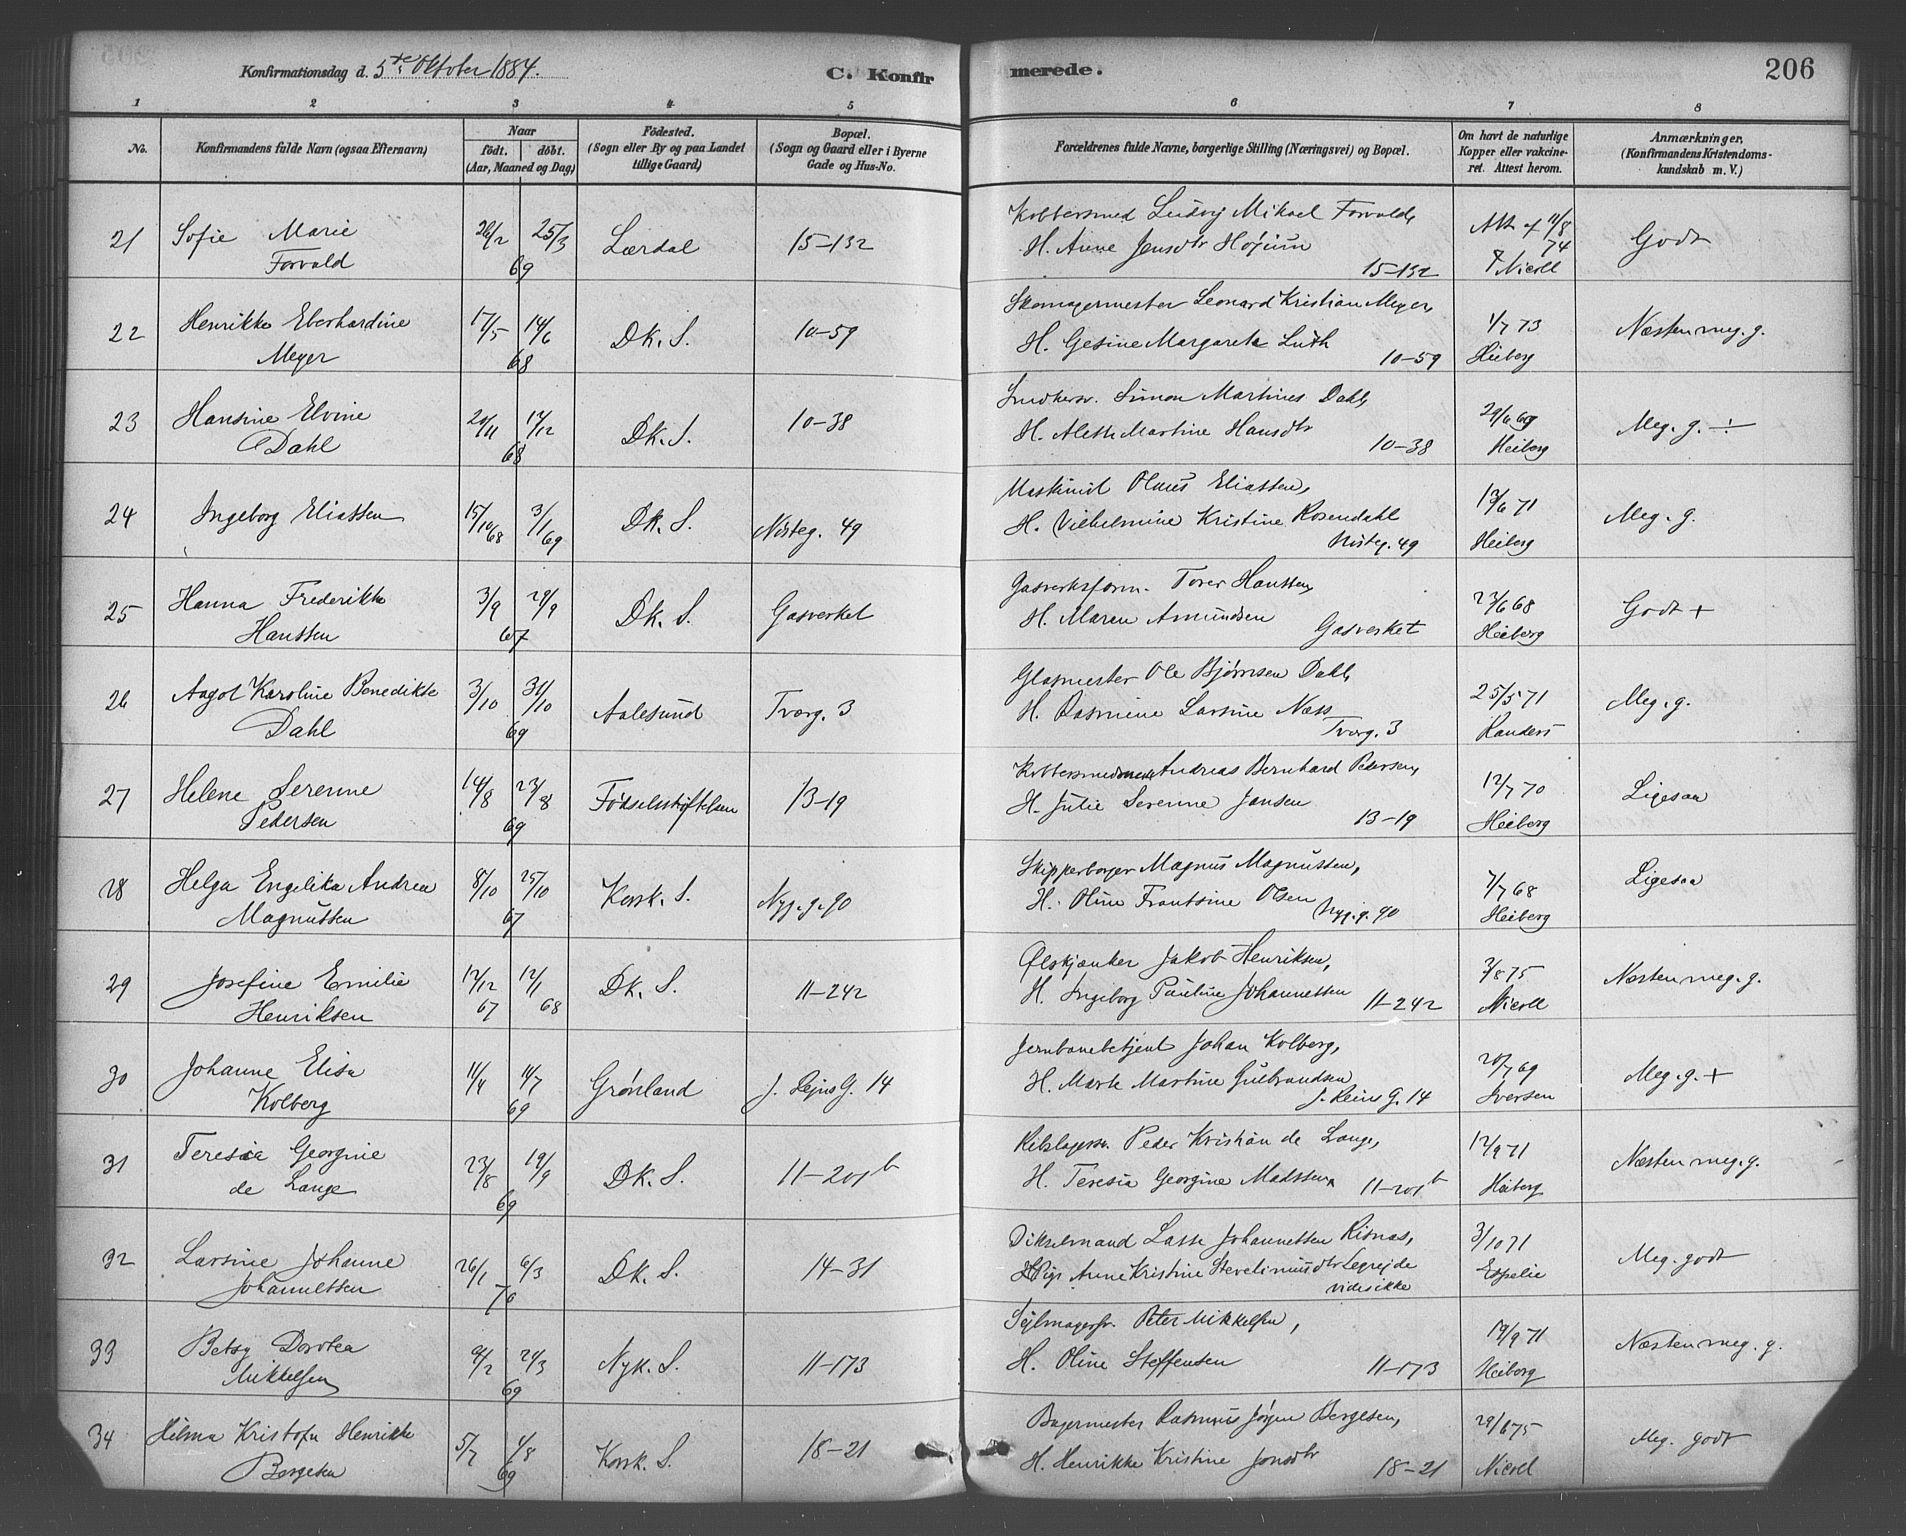 Konfirmationsdag d. 5te Oktober 1884.
C. Konfirmerede.
206
1 2 3 4 5 6 7 8
No.
Konfirmandens fulde Navn (ogsaa Efternavn)
Naar
födt. döbt.
(Aar, Maaned og Dag)
Födested.
(Sogn eller By og paa Landet
tillige Gaard)
Bopæl.
(Sogn og Gaard eller i Byerne
Gade og Hus-No.
Forældrenes fulde Navne, borgerlige Stilling (Næringsvei) og Bopæl.
Om havt de naturlige
Kopper eller vakcine-
ret. Attest herom.
Anmærkninger,
(Konfirmandens Kristendoms-
kundskab m. V.)
21 Sofie Marie
Forvald
26/2 25/3
69
Lærdal
15-132
Kobbersmed Ludvig Mikael Forvald,
H. Anne Jensdtr Højum
15-132
Att. af 11/8
74
Nicoll
Godt
22 Henrikke Eberhardine
Meyer
17/5 14/6
68
Dk. S.
10-59
Skomagermester Leonard Kristian Meyer,
H. Gesine Margareta Luth
10-59
1/7 73
Heiberg
Næsten meg. g.
23 Hansine Elvine
Dahl
20/11 17/12
68
Dk. S.
10-38
Snedkersv. Simon Martines Dahl,
H. Aleth Martine Hansdtr
10-38
29/6 69
Heiberg
Meg. g. ÷
24 Ingeborg Eliassen
15/10 68 3/1 69
Dk. S.
Nösteg. 49
Maskinist Olaus Eliassen,
H. Vilhelmine Kristine Rosendahl
Nösteg. 49
13/6 71
Heiberg
Meg. g.
25 Hanna Frederikke
Hanssen
3/9 29/9
67
Dk. S.
Gasverket
Gasverksform. Torer Hanssen,
H. Maren Amundsen
Gasverket
23/6 68
Heiberg
Godt +
26 Aagot Karoline Benedikte
Dahl
3/10 31/10
69
Aalesund
Tverg. 3
Glasmester Ole Bjørnsen Dahl,
H. Rasmine Larsine Næss
Tverg. 3
25/5 71
Randers
Meg. g.
27 Helene Serenne
Pedersen
14/8 23/8
69
Fødselsstiftelsen
13-19
Kobbersmedmest Andreas Bernhard Pedersen,
H. Julie Serenne Jansen
13-19
12/7 70
Heiberg
Ligesaa
28 Helga Engelika Andrea
Magnussen
8/10 25/10
67
Korsk. S.
Nyg. g. 90
Skipperborger Magnus Magnussen,
H. Oline Frantsine Olsen
Nyg. g. 90
7/7 68
Heiberg
Ligesaa
29 Josefine Emilie
Henriksen
12/12 12/1
67 68
Dk. S.
11-242
Ølskjænker Jakob Henriksen,
H. Ingeborg Pauline Johannessen
11-242
3/8 75
Nicoll
Næsten meg. g.
30 Johanne Elisa
Kolberg
11/4 14/7
69
Grønland
J. Rejns G. 14
Jernbanebetjent Johan Kolberg,
H. Marte Martine Gulbrandsen
J. Reins G. 14
20/7 69
Iversen
Meg. g. +
31 Teresia Georgine
de Lange
23/8 19/9
69
Dk. S.
11-201b
Rebslagersv. Peder Kristian de Lange,
H. Teresia Georgine Madssen
11-201b
12/9 71
Heiberg
Næsten meg. g.
32 Larsine Johanne
Johannessen
26/1 6/3
70
Dk. S.
14-31
Dikselmand Lasse Johannessen Risnæs,
Pige Anne Kristine Stevelinusdtr Legrejde
vides ikke
3/10 71
Espelie
Meg. godt
33 Betsy Dorotea
Mikkelsen
9/2 21/3
69
Nyk. S.
11-173
Sejlmagersv. Peter Mikkelsen,
H. Oline Steffensen
11-173
19/9 71
Heiberg
Næsten meg. g.
34 Hilma Kristofa Henrikke
Bergesen
5/7 1/8
69
Korsk. S.
18-21
Bagermester Rasmus Jørgen Bergesen,
H. Henrikke Kristine Jonsdtr
18-21
29/6 75
Nicoll
Meg. godt